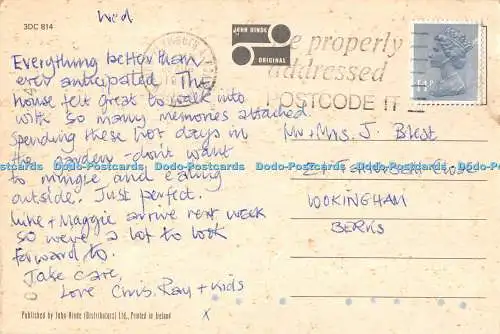 Wed
3DC 814
JOHN HINDE
ORIGINAL
Everything better than
ever anticipated. The
house felt great to walk into
with so many memories attached.
Spending these hot days in
the garden - don't want
to mingle and eating
outside. Just perfect.
Luke + Maggie arrive next week
so we've a lot to look
forward to.
Take care,
Love Chris, Ray + kids
x
be properly
addressed
POSTCODE IT
Mr + Mrs. J. Blest
Close
WOKINGHAM
BERKS
Dodo-Postcards Dodo-Postcards Dodo-Postcards Dodo-Postcards
Published by John Hinde (Distributors) Ltd., Printed in Ireland